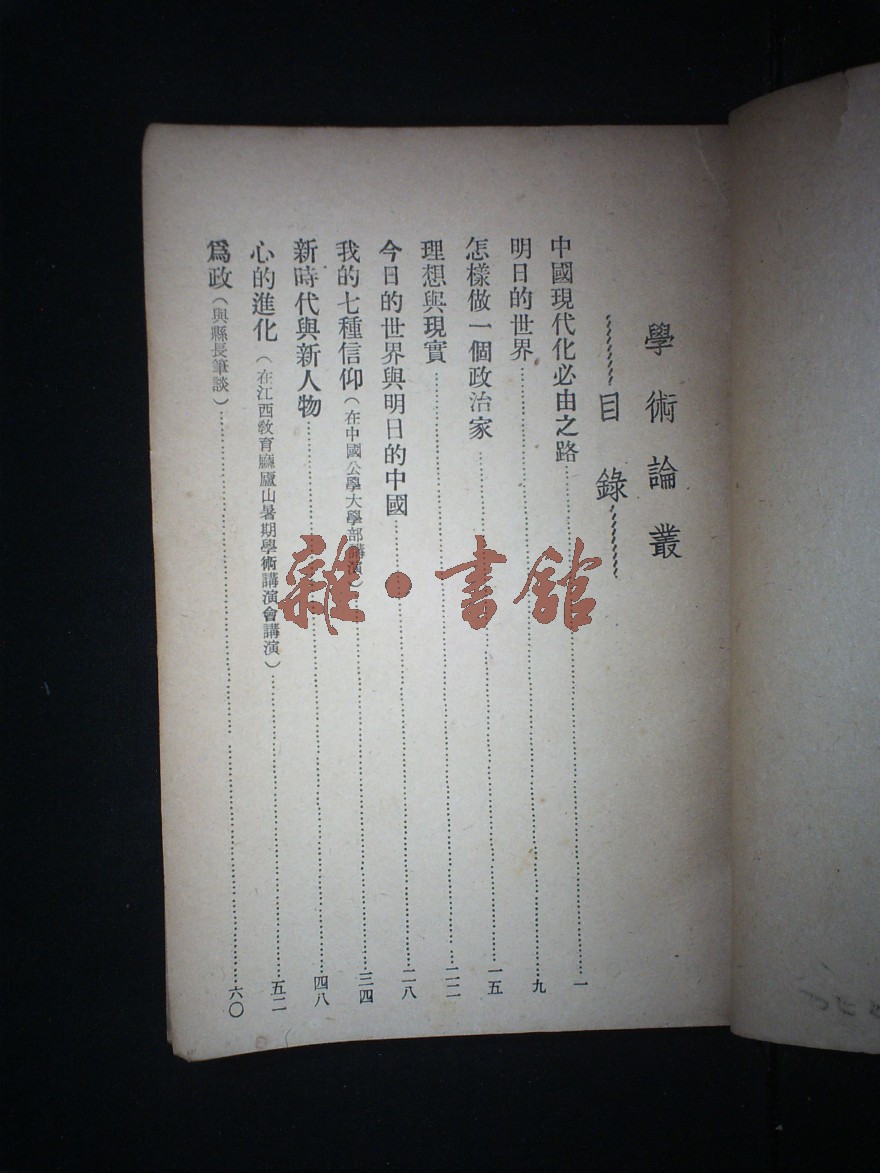 學術論叢
目錄
中國現代化必由之路……一
明日的世界……九
怎樣做一個政治家……一五
理想與現實……二二
今日的世界與明日的中國……二八
我的七種信仰(在中國公學大學部講演)……三四
新時代與新人物……四八
心的進化(在江西教育廳廬山暑期學術講演會講演)……五二
爲政(與縣長筆談)……六〇
雜·書館